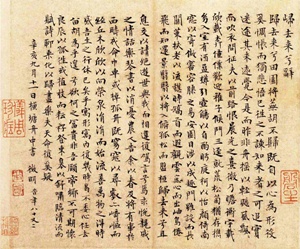 歸去來兮辭
歸去來兮田園將蕪胡不歸既自以心為形役
奚惆悵而獨悲悟已往之不諫知來者之可追實
迷途其未遠覺今是而昨非舟搖搖以輕颺風飄飄
而吹衣問征夫以前路恨晨光之熹微乃瞻衡宇載
欣載奔僮僕歡迎稚子候門三逕就荒松菊猶存攜
幼入室有酒盈樽引壺觴以自酌眄庭柯以怡顏倚南
窗以寄傲審容膝之易安園日涉以成趣門雖設而常
關策扶老以流憩時矯首而遐觀雲無心以出岫鳥倦
飛而知還景翳翳以將入撫孤松而盤桓歸去來兮請
息交以絕遊世與我而相遺復駕言兮焉求悅親戚
之情話樂琴書以消憂農人告余以春及將有事於
西疇或命巾車或棹孤舟既窈窕以尋壑亦崎嶇而
經丘木欣欣以向榮泉涓涓而始流羨萬物之得時
感吾生之行休已矣乎寓形宇內復幾時曷不委心任去
留胡為遑遑欲何之富貴非吾願帝鄉不可期懷
良辰以孤往或植杖而耘耔登東皋以舒嘯臨清流而
賦詩聊乘化以歸盡樂夫天命復奚疑
辛亥九月十一日橫塘舟中書 徵明 旹年八十又二